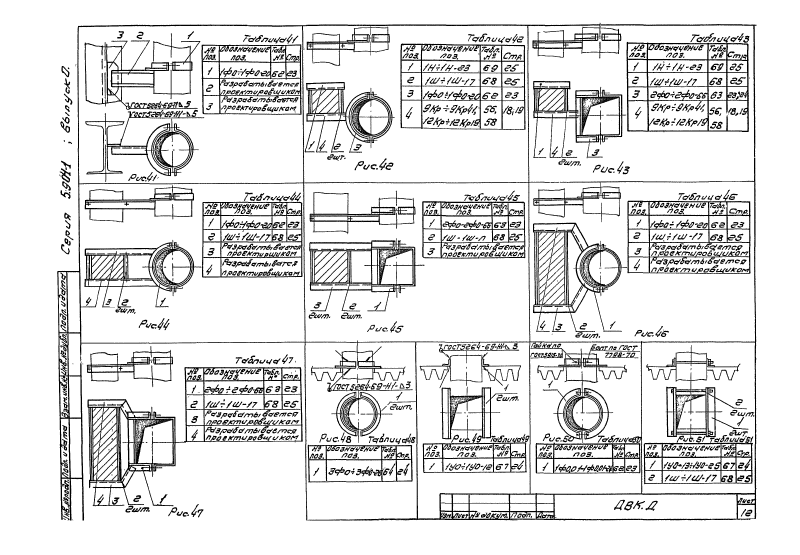 Серия 5.904-1 ; Выпуск 0.
3 2 1
Таблица 41
№ поз. Обозначение поз. Табл. № Стр.
1 1ФО÷1ФО-20 62 23
2 Разрабатывается проектировщиком
3 Разрабатывается проектировщиком
ГОСТ 5264-69-Н1-⊿5
Рис.41.
Таблица 42
№ поз. Обозначение поз. Табл. № Стр.
1 1Н÷1Н-23 69 25
2 1Ш÷1Ш-17 68 25
3 1ФО÷1ФО-20 62 23
4 9Кр÷9Кр41, 12Кр÷12Кр19 56, 58 18,19
1 4 2 3
2шт.
Рис.42
Таблица 43
№ поз. Обозначение поз. Табл. № Стр.
1 1Н÷1Н-23 69 25
2 1Ш÷1Ш-17 68 25
3 2ФО÷2ФО-66 63
4 9Кр÷9Кр41, 12Кр÷12Кр19 56, 58 18,19
1 4 2 3
2шт.
Рис.43
Таблица 44
№ поз. Обозначение поз. Табл. № Стр.
1 1ФО÷1ФО-20 62 23
2 1Ш÷1Ш-17 68 25
3 Разрабатывается проектировщиком
4 Разрабатывается проектировщиком
4 3 2 1
2шт.
Рис.44
Таблица 45
№ поз. Обозначение поз. Табл. № Стр.
1 2ФО-2ФО-66 63 23
2 68 25
3 Разрабатывается проектировщиком
3 2 1
2шт. 2шт.
Рис.45
Таблица 46
№ поз. Обозначение поз. Табл. № Стр.
1 1ФО÷1ФО-20 62 23
2 1Ш÷1Ш-17 68 25
3 Разрабатывается проектировщиком
4 Разрабатывается проектировщиком
4 3 2 1
2шт.
Рис.46
Таблица 47.
№ поз. Обозначение поз. Табл. № Стр.
1 2ФО÷2ФО-66 63 23
2 1Ш÷1Ш-17 68 25
3 Разрабатывается проектировщиком
4 Разрабатывается проектировщиком
4 3 2 1
2шт.
Рис.47
ГОСТ 5264-69-Н1-⊿3
1
2шт.
Рис.48 Таблица 48
№ поз. Обозначение поз. Табл. № Стр.
1 64 24
ГОСТ 5264-69-Н1-⊿3
1
2шт.
Рис.49 Таблица 49
№ поз. Обозначение поз. Табл. № Стр.
1 1УО÷1УО-12 67 24
Гайка по
Болт по ГОСТ 7798-70
1
Рис.50 Таблица 50
№ поз. Обозначение поз. Табл. № Стр.
1 62 23
2
2шт.
1
2шт.
Рис.51 Таблица 51
№ поз. Обозначение поз. Табл. № Стр.
1 1УО-13÷1УО-25 67 24
2 1Ш÷1Ш-17 68 25
Изм. Лист № докум. Подп. Дата
ДВК.Д
Лист
12
Инв.№подл. Подп. и дата Взам.инв.№ Инв.№дубл. Подп. и дата